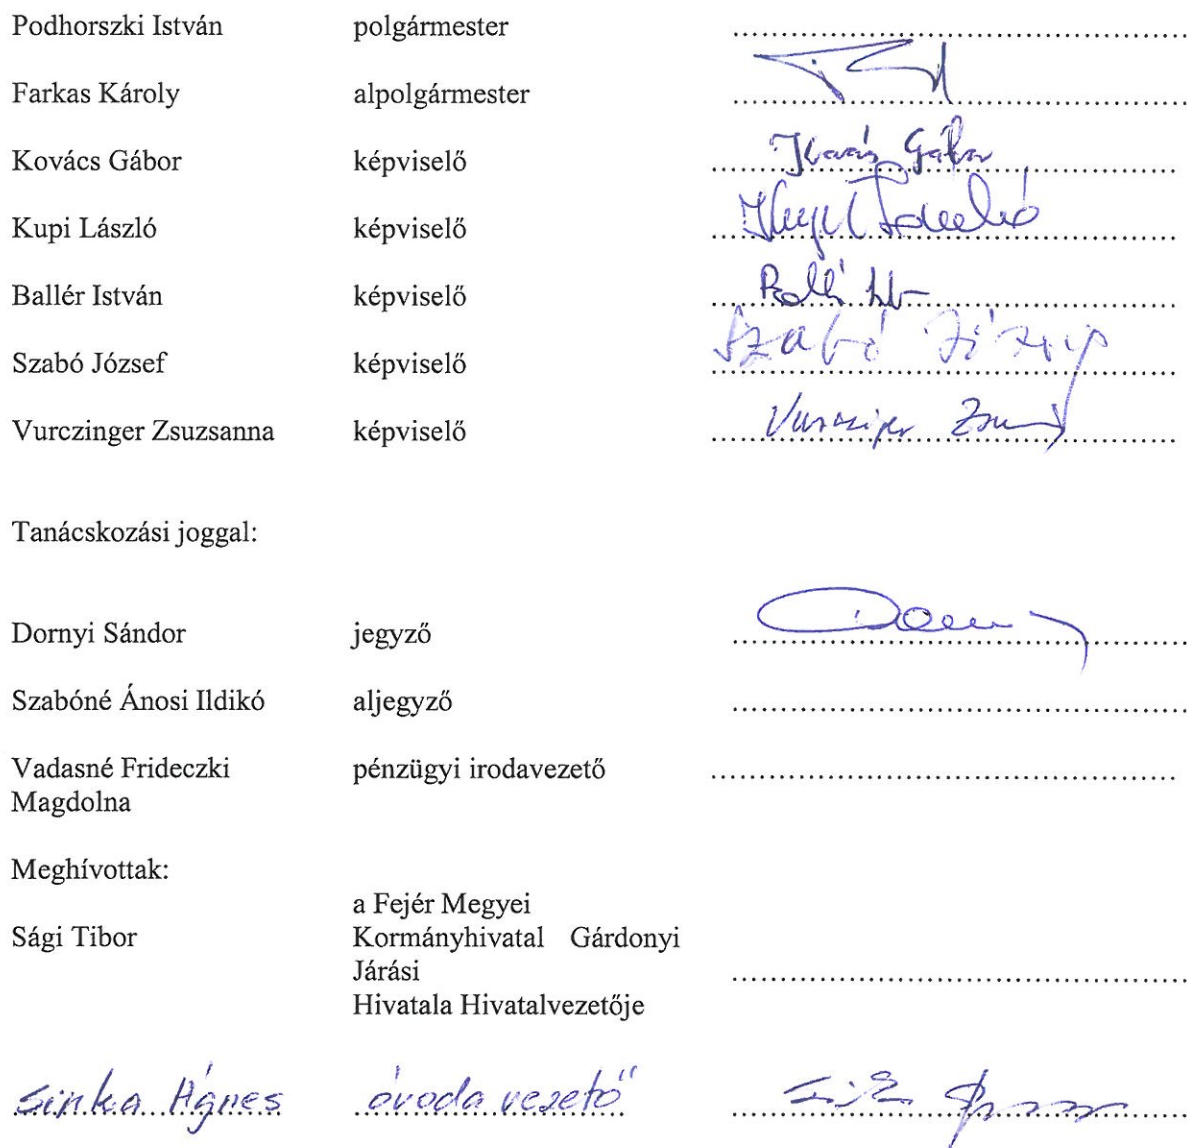 Podhorszki István polgármester ................................................
Farkas Károly alpolgármester ................................................
Kovács Gábor képviselő Kovács Gábor
Kupi László képviselő Kupi László
Ballér István képviselő
Szabó József képviselő Szabó József
Vurczinger Zsuzsanna képviselő Vurczinger
Tanácskozási joggal:
Dornyi Sándor jegyző
Szabóné Ánosi Ildikó aljegyző ................................................
Vadasné Frideczki pénzügyi irodavezető ................................................
Magdolna
Meghívottak:
a Fejér Megyei
Sági Tibor Kormányhivatal Gárdonyi
Járási ................................................
Hivatala Hivatalvezetője
Sinka Ágnes óvoda vezető